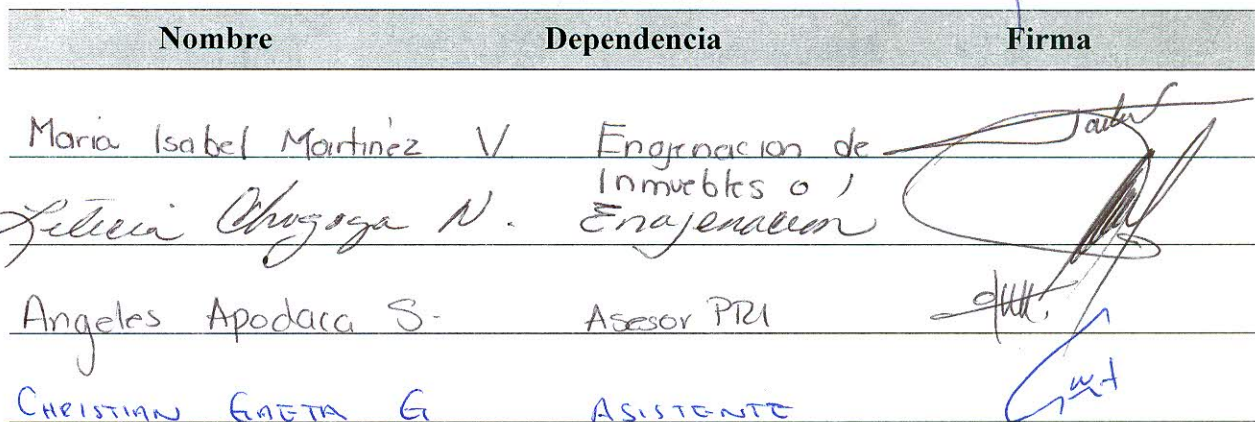 Nombre Dependencia Firma
Maria Isabel Martinez V Enajenacion de
Inmuebles o
Leticia N. Enajenacion
Angeles Apodaca S. Asesor PRI
CHRISTIAN GAETA G ASISTENTE